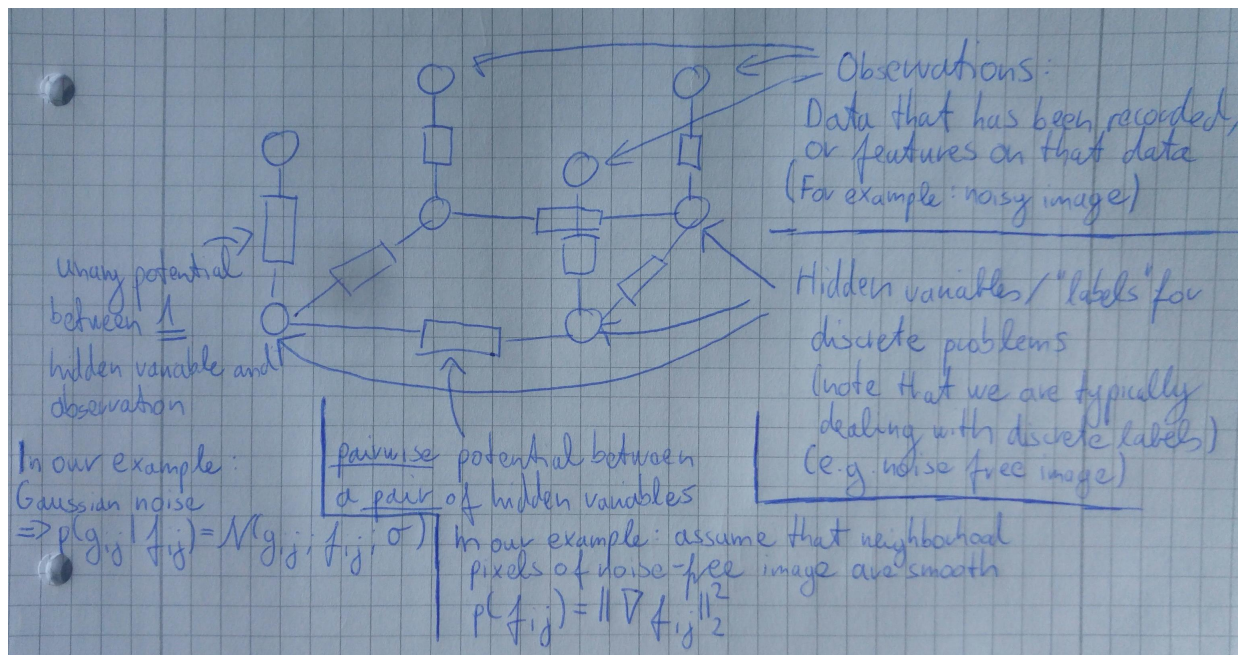 Observations:
Data that has been recorded,
or features on that data
(For example: noisy image)
Hidden variables/"labels" for
discrete problems
(note that we are typically
dealing with discrete labels)
(e.g. noise free image)
Unary potential
between 1
hidden variable and
observation
In our example:
Gaussian noise
=> p(g_{i,j} | f_{i,j}) = N(g_{i,j}; f_{i,j}, σ)
pairwise potential between
a pair of hidden variables
In our example: assume that neighborhood
pixels of noise-free image are smooth
p(f_{i,j}) = ||∇ f_{i,j}||_2^2